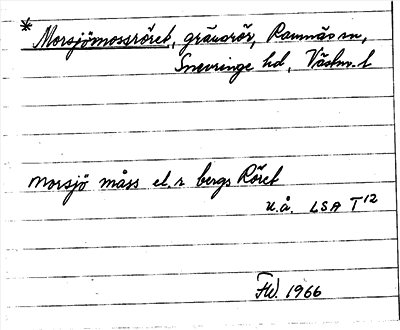 * Morsjömossröret, gränsrör, Ramnäs sn,
Snevringe hd, Västm. l
Morsjö måss el. r bergs Röret
u.å. LSA T 12
FW. 1966